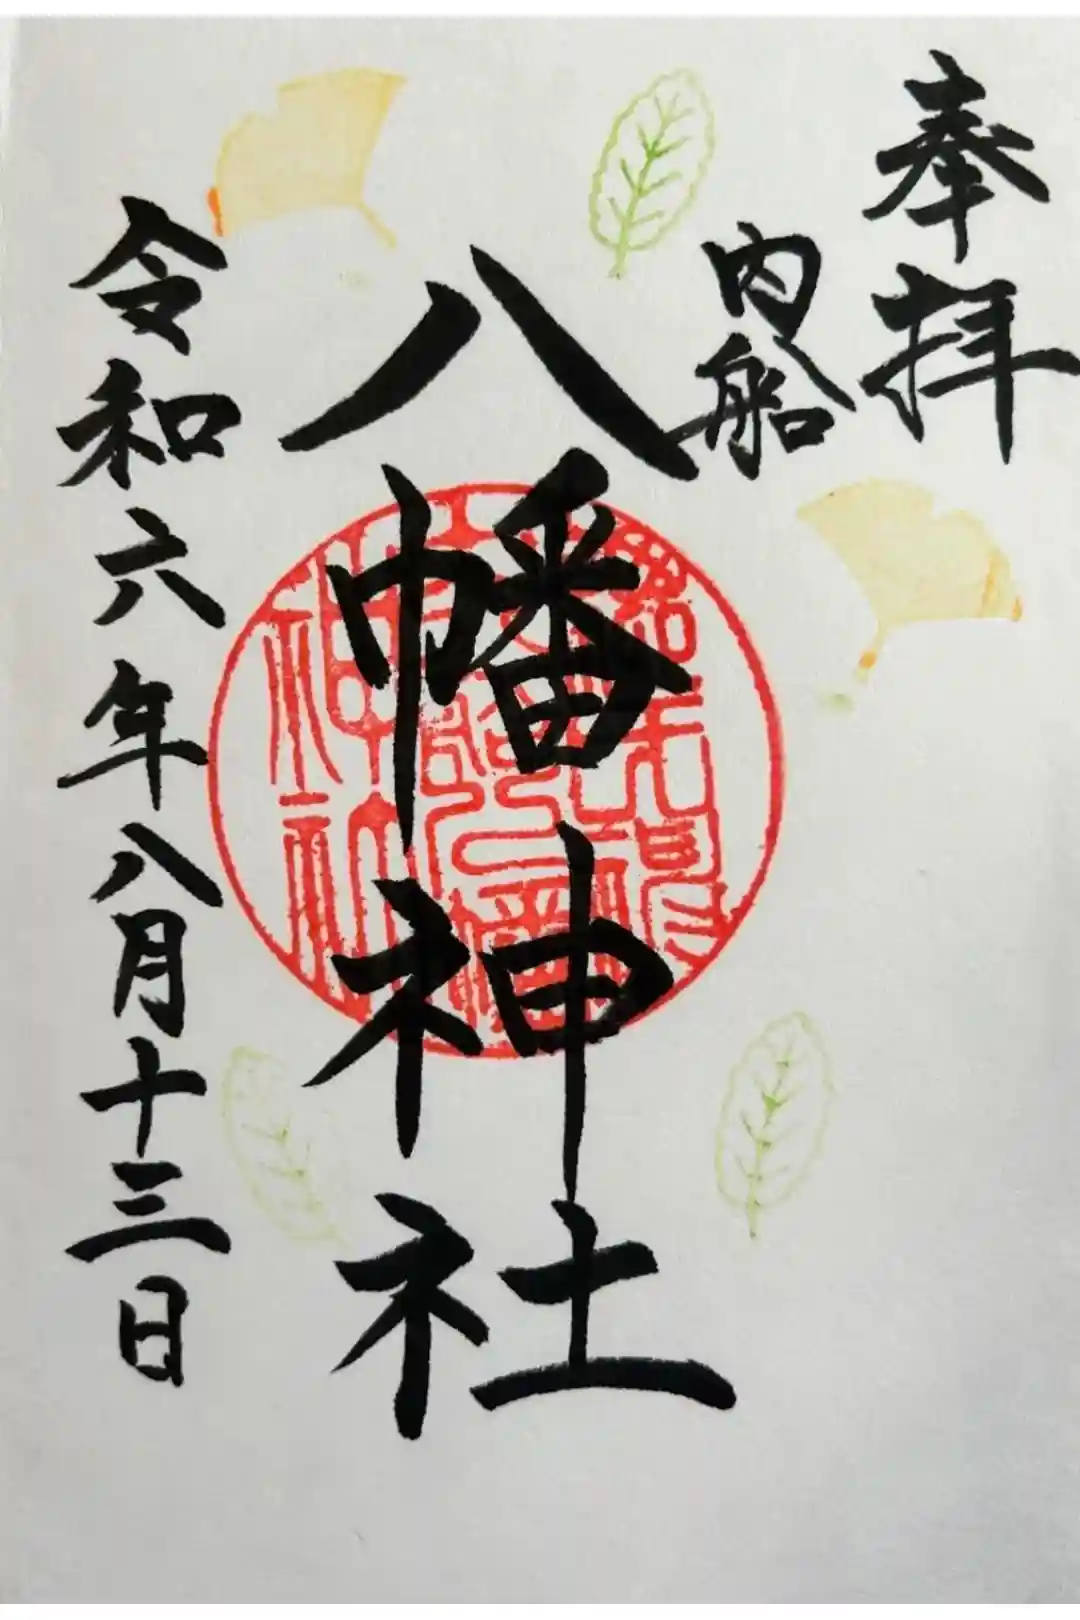 奉拝
内船
八幡神社
令和六年八月十三日